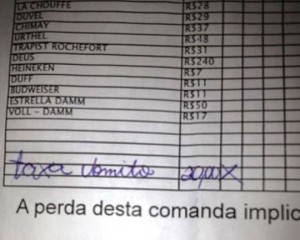 LA CHOUFFE R$28
DUVEL R$29
CHIMAY R$37
URTHEL R$48
TRAPIST ROCHEFORT R$31
DEUS R$240
HEINEKEN R$7
DUFF R$11
BUDWEISER R$11
ESTRELLA DAMM R$50
VOLL - DAMM R$17
taxa vomito 20,00 X
A perda desta comanda implic